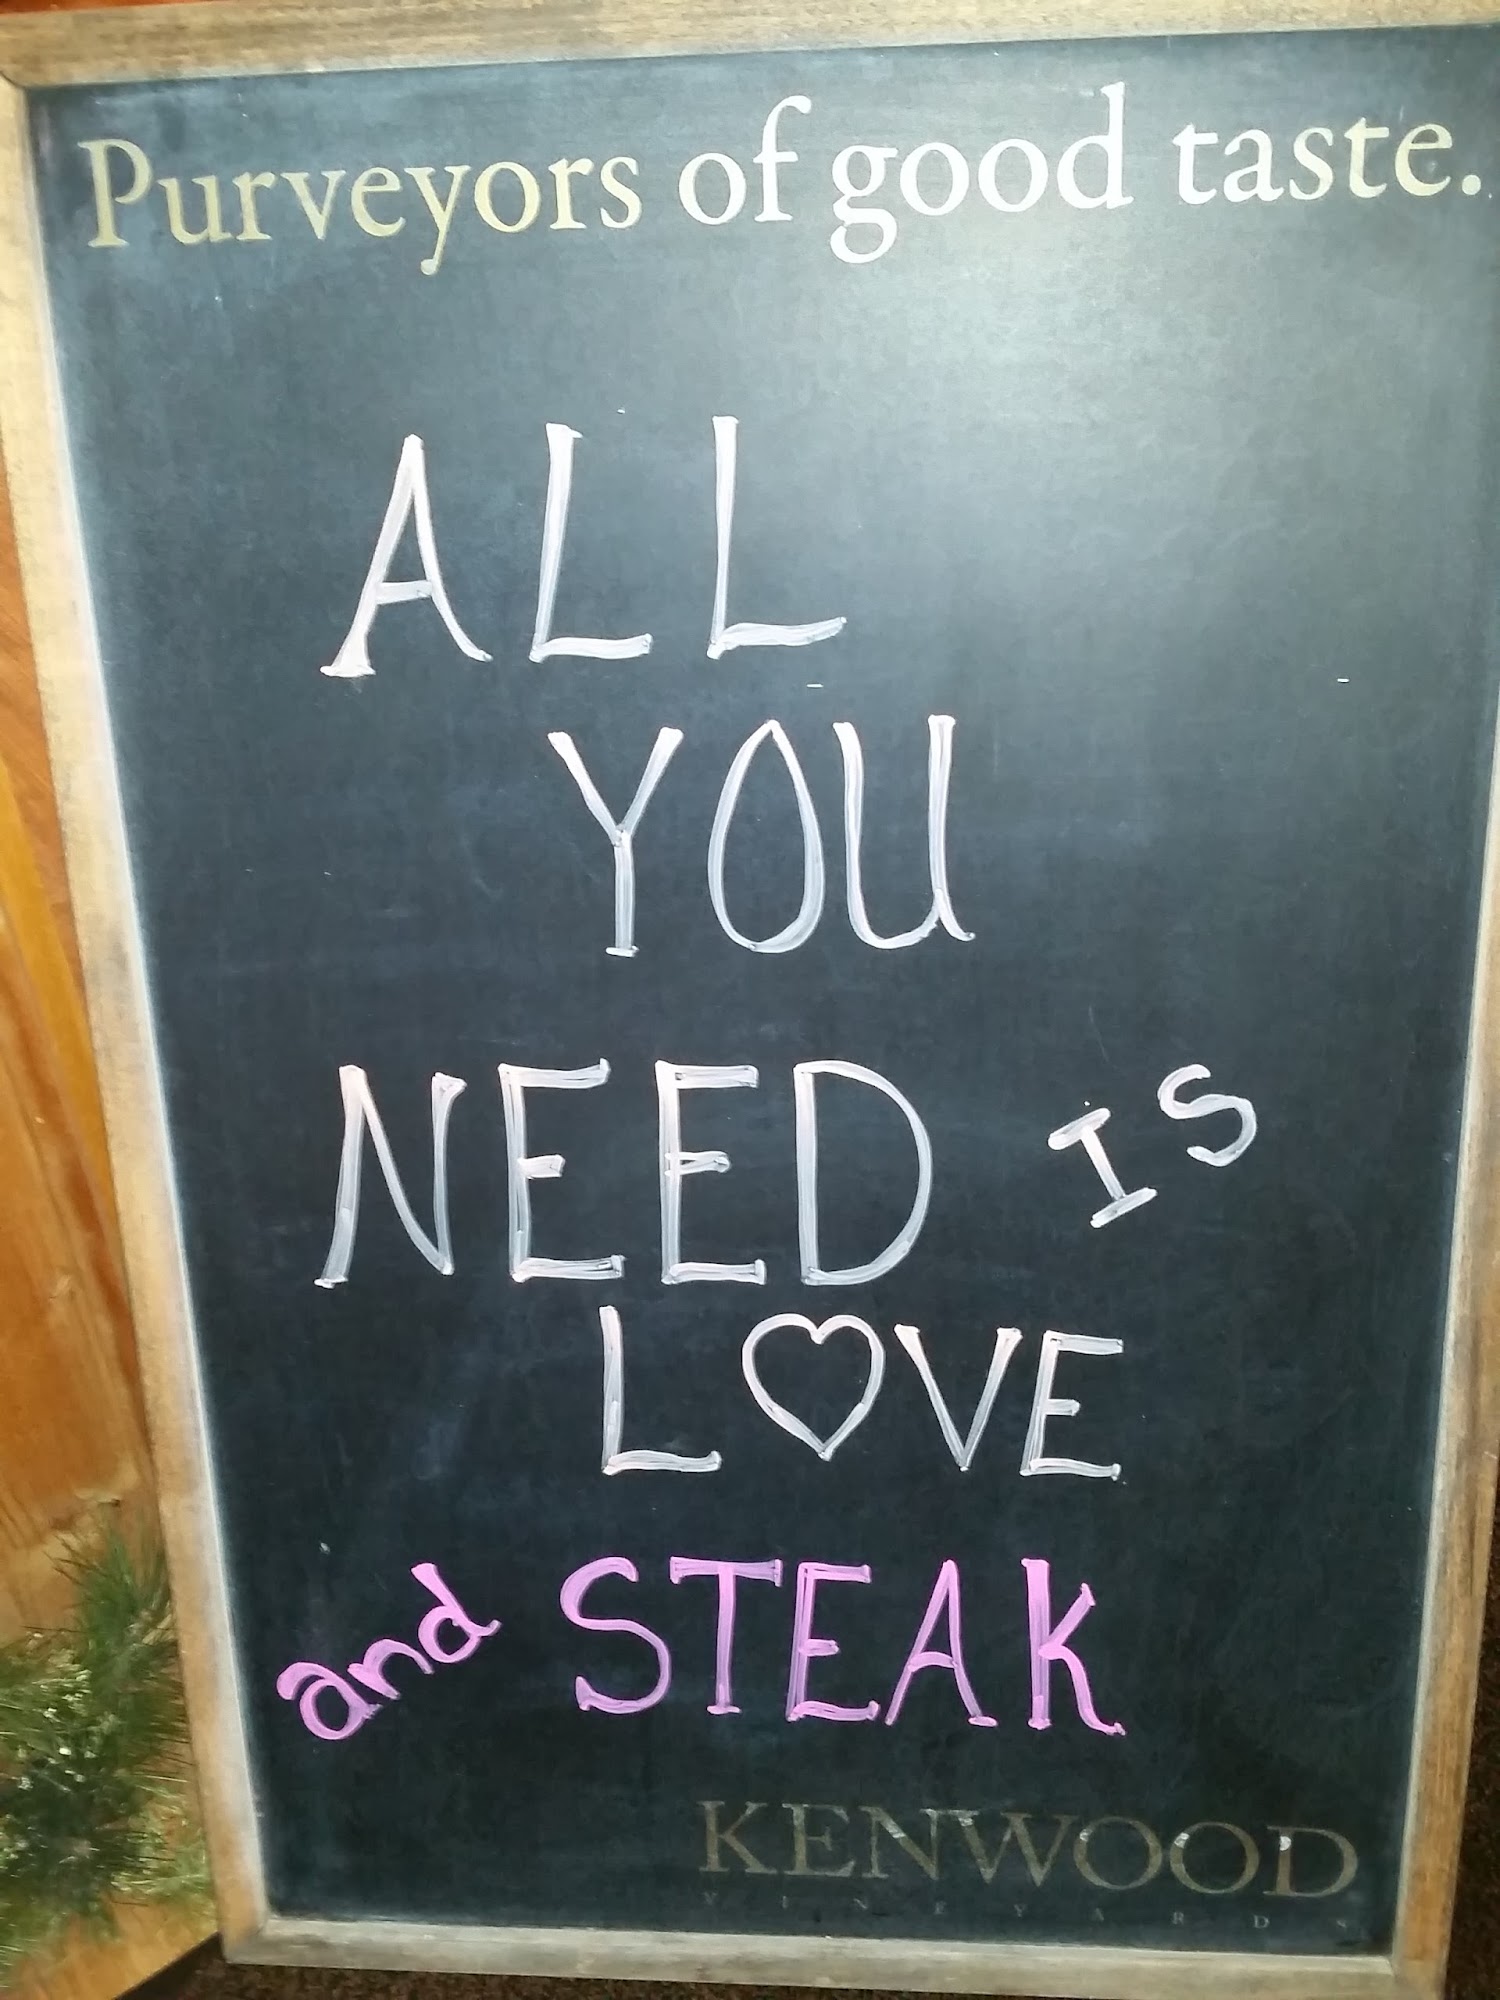 Purveyors of good taste.
ALL
YOU
NEED IS
L♡VE
and STEAK
KENWOOD
VINEYARDS